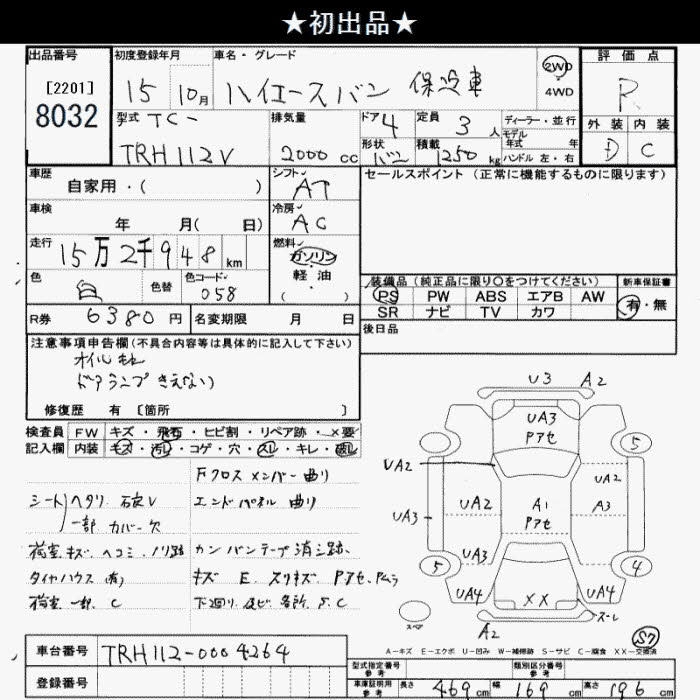 ★初出品★
出品番号 初度登録年月 車名・グレード 2WD 評価点
[2201] 15 10月 ハイエースバン 保冷車 4WD R
8032 型式 TC- 排気量 ドア 4 定員 3人 ディーラー・並行 外装 内装
モデル 年式 年
TRH112V 2000cc 形状 バン 積載 1250kg ハンドル 左・右 D C
車歴 シフト AT セールスポイント(正常に機能するものに限ります)
自家用・( )
車検 冷房 AC
年 月( 日)
走行 燃料 ガソリン
15万2千948km 軽油
色 白 色替 色コード 058 ( )
装備品(純正品に限り○をつけてください) 新車保証書
PS PW ABS エアB AW 有・無
SR ナビ TV カワ
R券 6380円 名変期限 月 日 後日品
注意事項申告欄(不具合内容等は具体的に記入して下さい)
オイルもれ
ドアランプきえない)
修復歴 有 [箇所 ]
検査員 FW キズ・飛石・ヒビ割・リペア跡・×要
記入欄 内装 キズ・汚レ・コゲ・穴・スレ・キレ・破レ
Fクロスメンバー曲り
シート ヘタリ V エンドパネル曲り
一部 カバー欠
荷室キズ ヘコミ ノリ跡 カンバンテープ消シ跡
タイヤハウス キズ E スリキズ Pアセ、Pムラ
荷室一部 C 下廻り 及び 各所 S.C
U3 A2
UA3
Pアセ
5
UA2 UA2
UA2 A1 A3
UA3 Pアセ
UA3
5 4
UA4 XX UA4
スペア A2 ズーレ
S7
A-キズ E-エクボ U-凹み W-補修跡 S-サビ C-腐食 XX-交換済
車台番号 TRH112-0004264
型式指定番号 参考 類別区分番号 参考
登録番号 車庫証明用 参考 長さ 469cm 幅 169cm 高さ 196cm